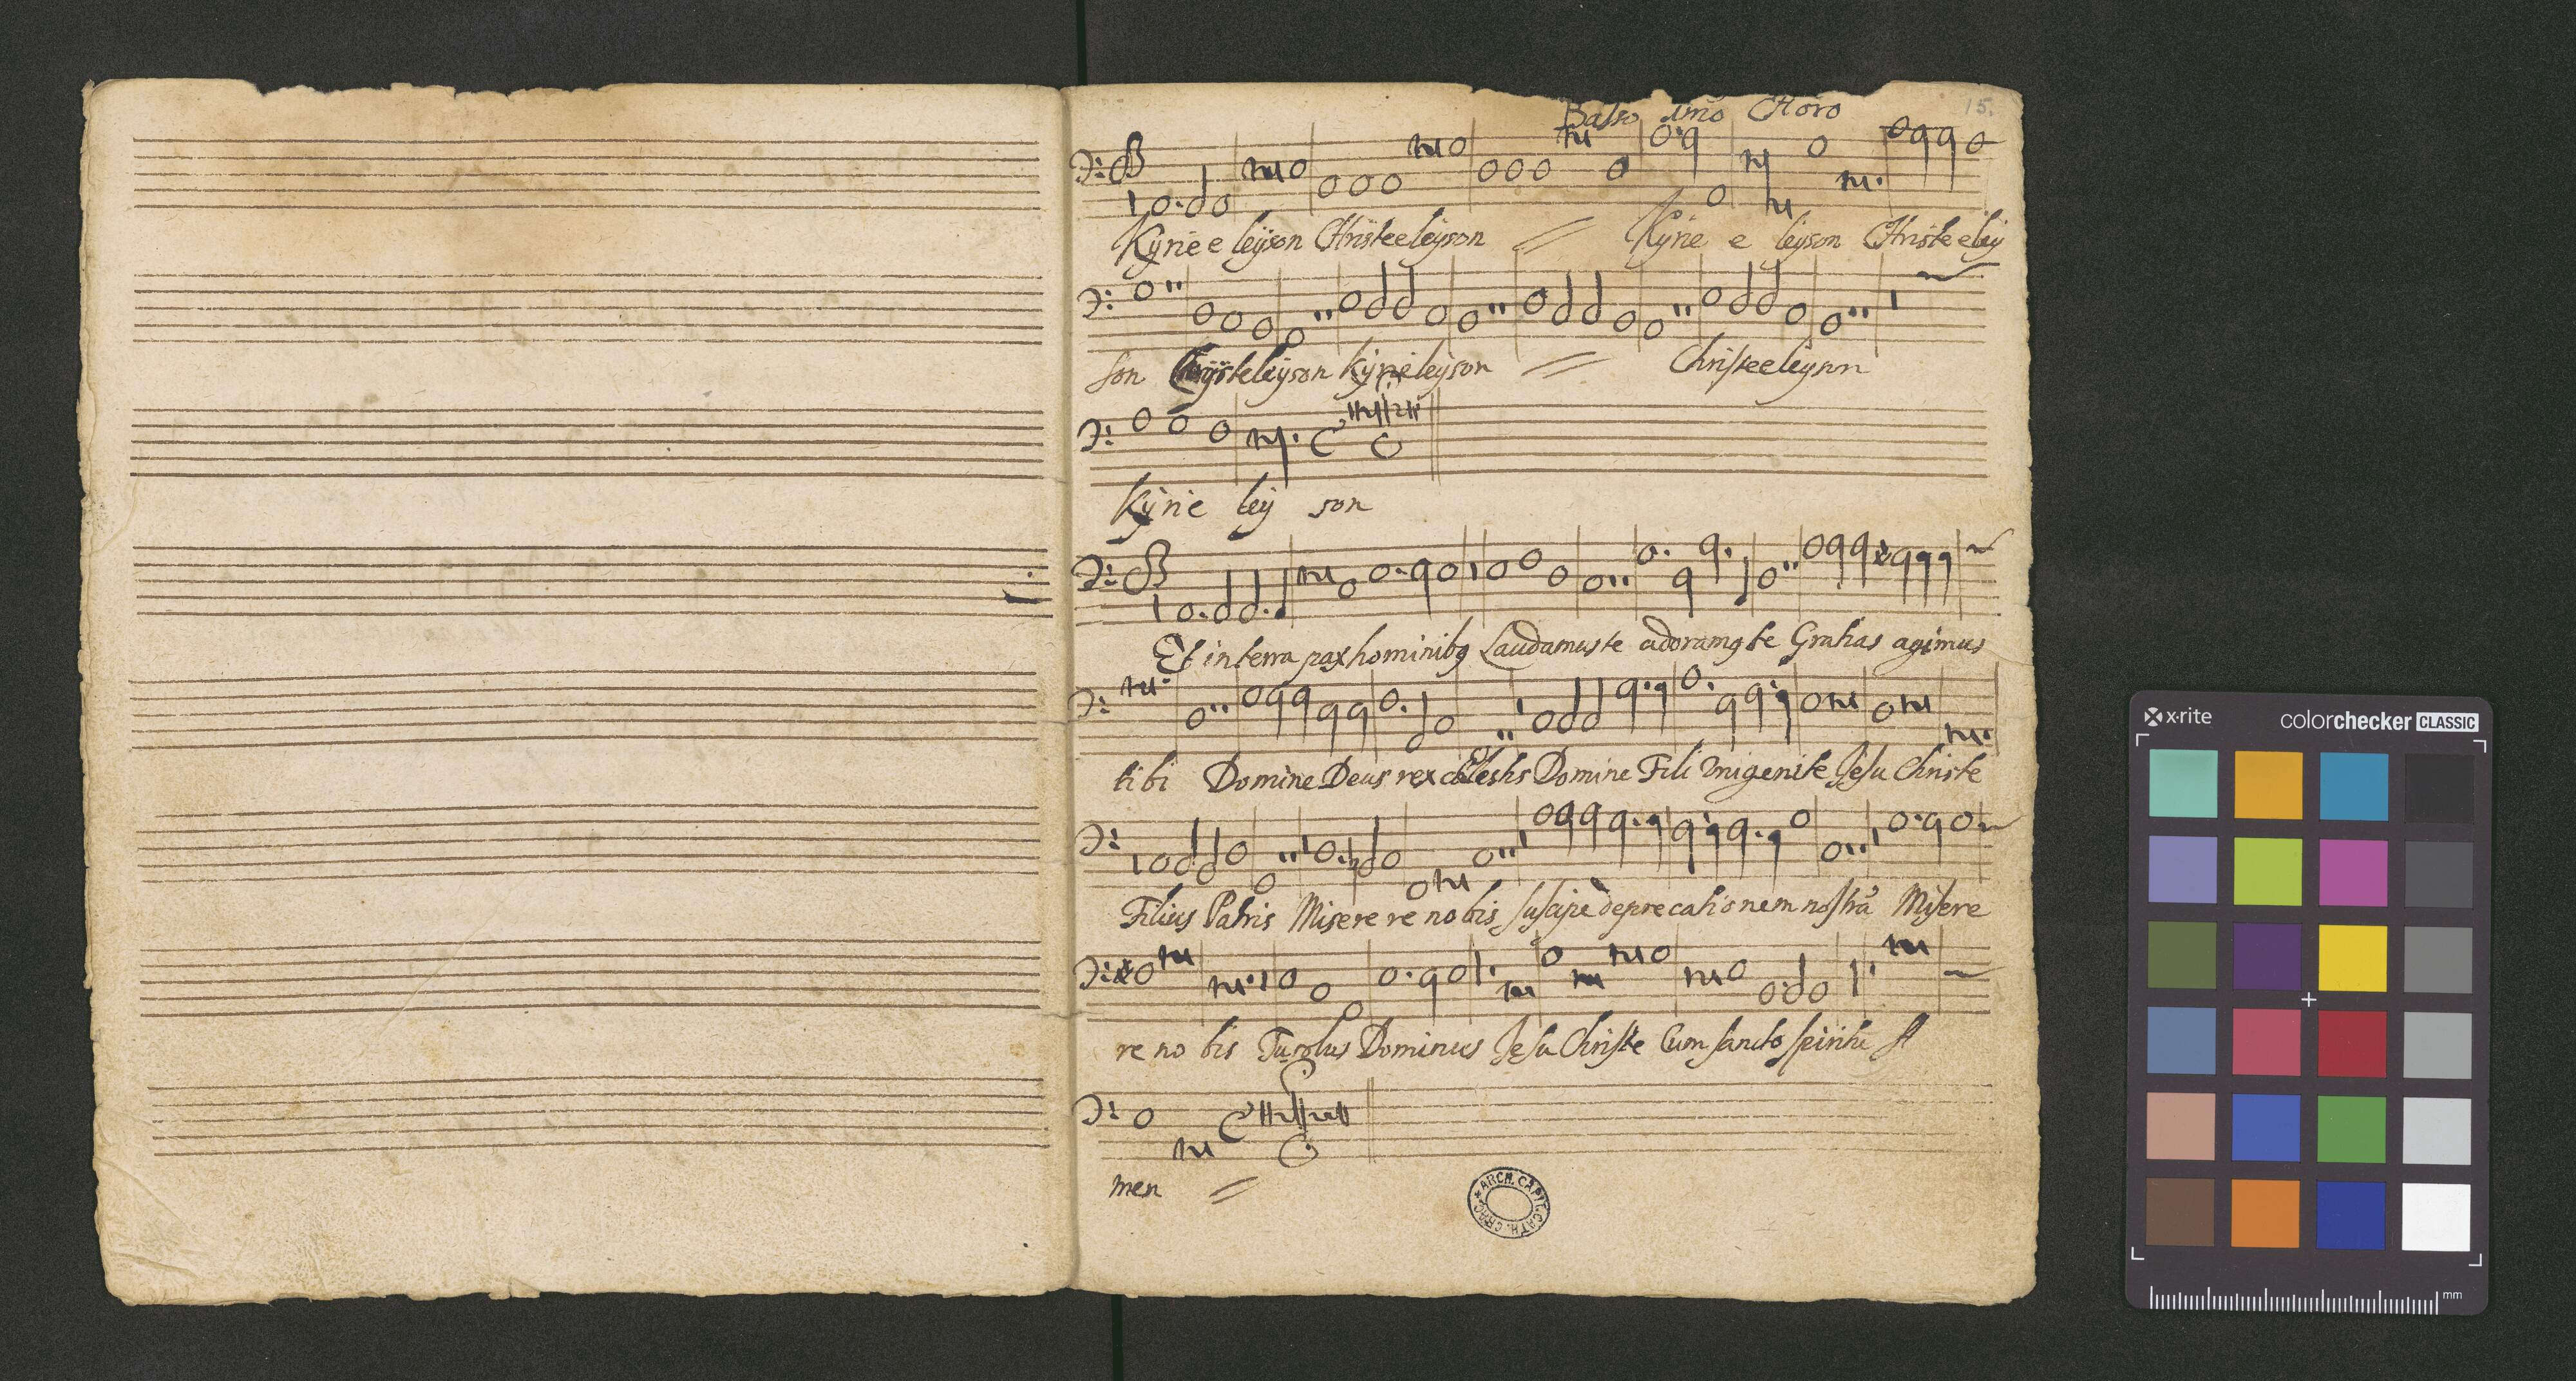 Basso Imo Choro 15.
Kyrie e leyson Christe eleyson Kyrie e leyson Christe eley
son Chryste leyson Kyrie leyson Christe eleyson
Kyrie ley son
Et in terra pax hominibq Laudamus te adoramq te Gratias agimus
tibi Domine Deus rex cælestis Domine Fili Vnigenite Jesu Christe
Filius Patris Miserere re nobis Suscipe deprecationem nostrã Misere
re no bis Tu solus Dominus Jesu Christe Cum sancto spiritu A
men
ARCH. CAPIT. CATH. CRAC.
x·rite colorchecker CLASSIC
mm